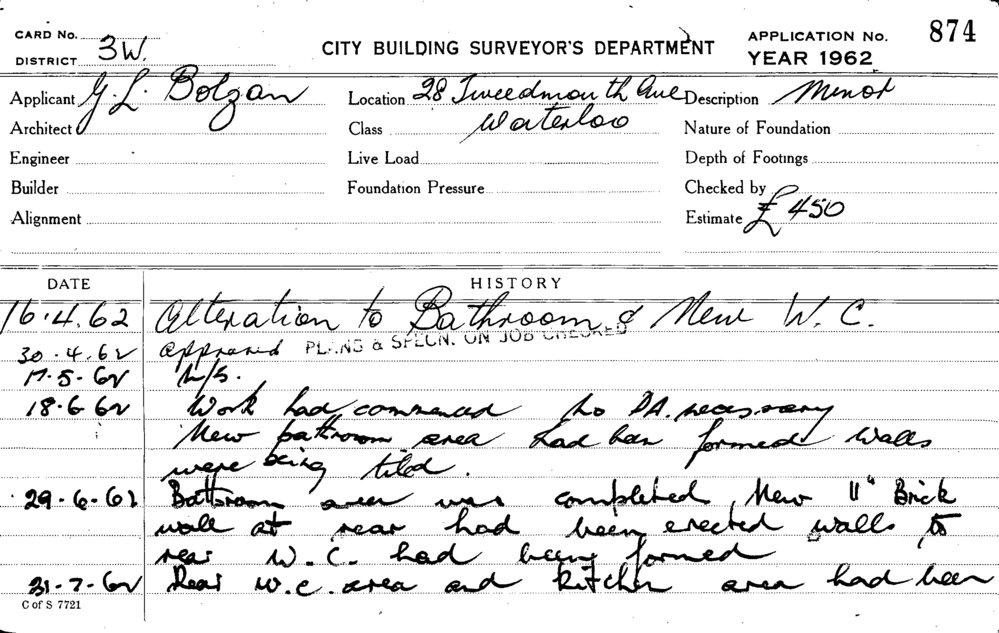 CARD No.
DISTRICT 3W.
CITY BUILDING SURVEYOR'S DEPARTMENT
APPLICATION No. 874
YEAR 1962
Applicant G. L. Bolzan Location 28 Tweedmouth Ave Description Minor
Architect Class Waterloo Nature of Foundation
Engineer Live Load Depth of Footings
Builder Foundation Pressure Checked by
Alignment Estimate £450
DATE HISTORY
16.4.62 Alteration to Bathroom & New W.C.
30.4.62 approved PLANS & SPECN. ON JOB CHECKED
17.5.62 N/S.
18.6.62 Work had commenced No D.A. necessary
New bathroom area had been formed walls
were being tiled.
29.6.62 Bathroom area was completed New 11" Brick
wall at rear had been erected walls to
rear W.C. had being formed
31.7.62 Rear W.C. area and kitchen area had been
C of S 7721